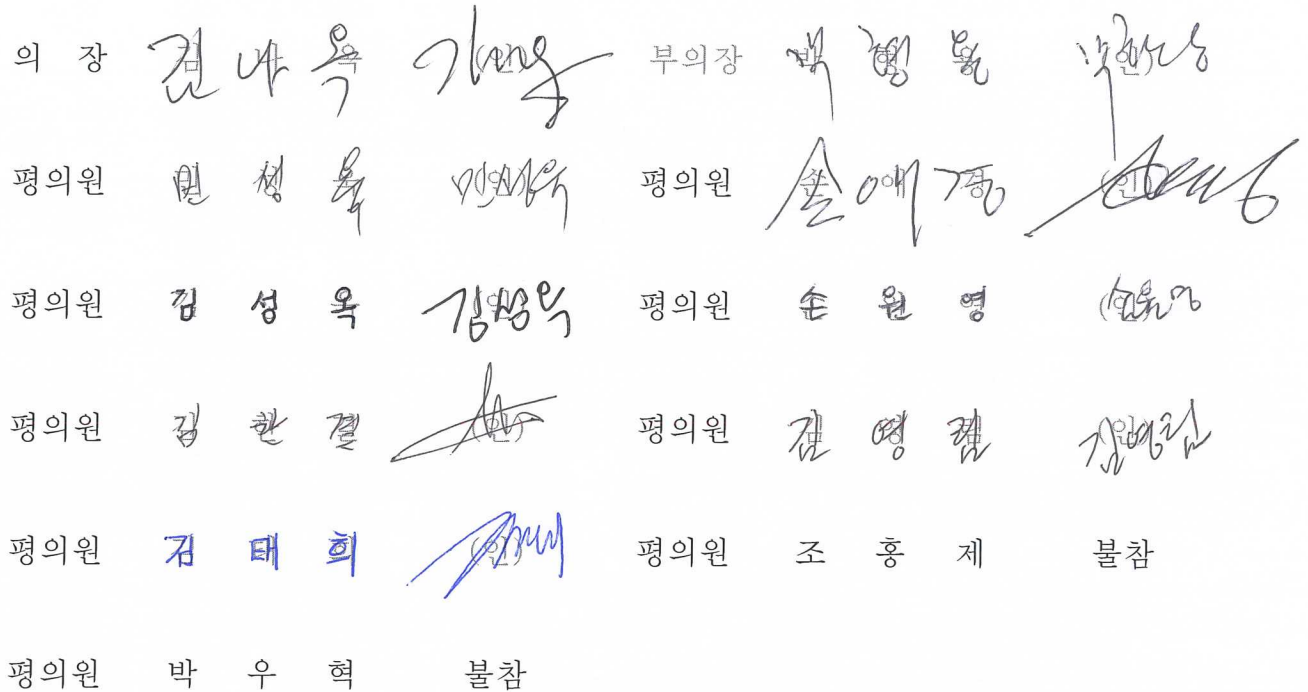 의 장 김 나 옥 (인) 부의장 백 형 용 (인)
평의원 민 성 욱 (인) 평의원 손 애 경 (인)
평의원 김 성 옥 김성옥 (인) 평의원 손 원 영 (인)
평의원 김 한 결 (인) 평의원 김 영 림 김영림 (인)
평의원 김 태 희 (인) 평의원 조 홍 제 불참
평의원 박 우 혁 불참